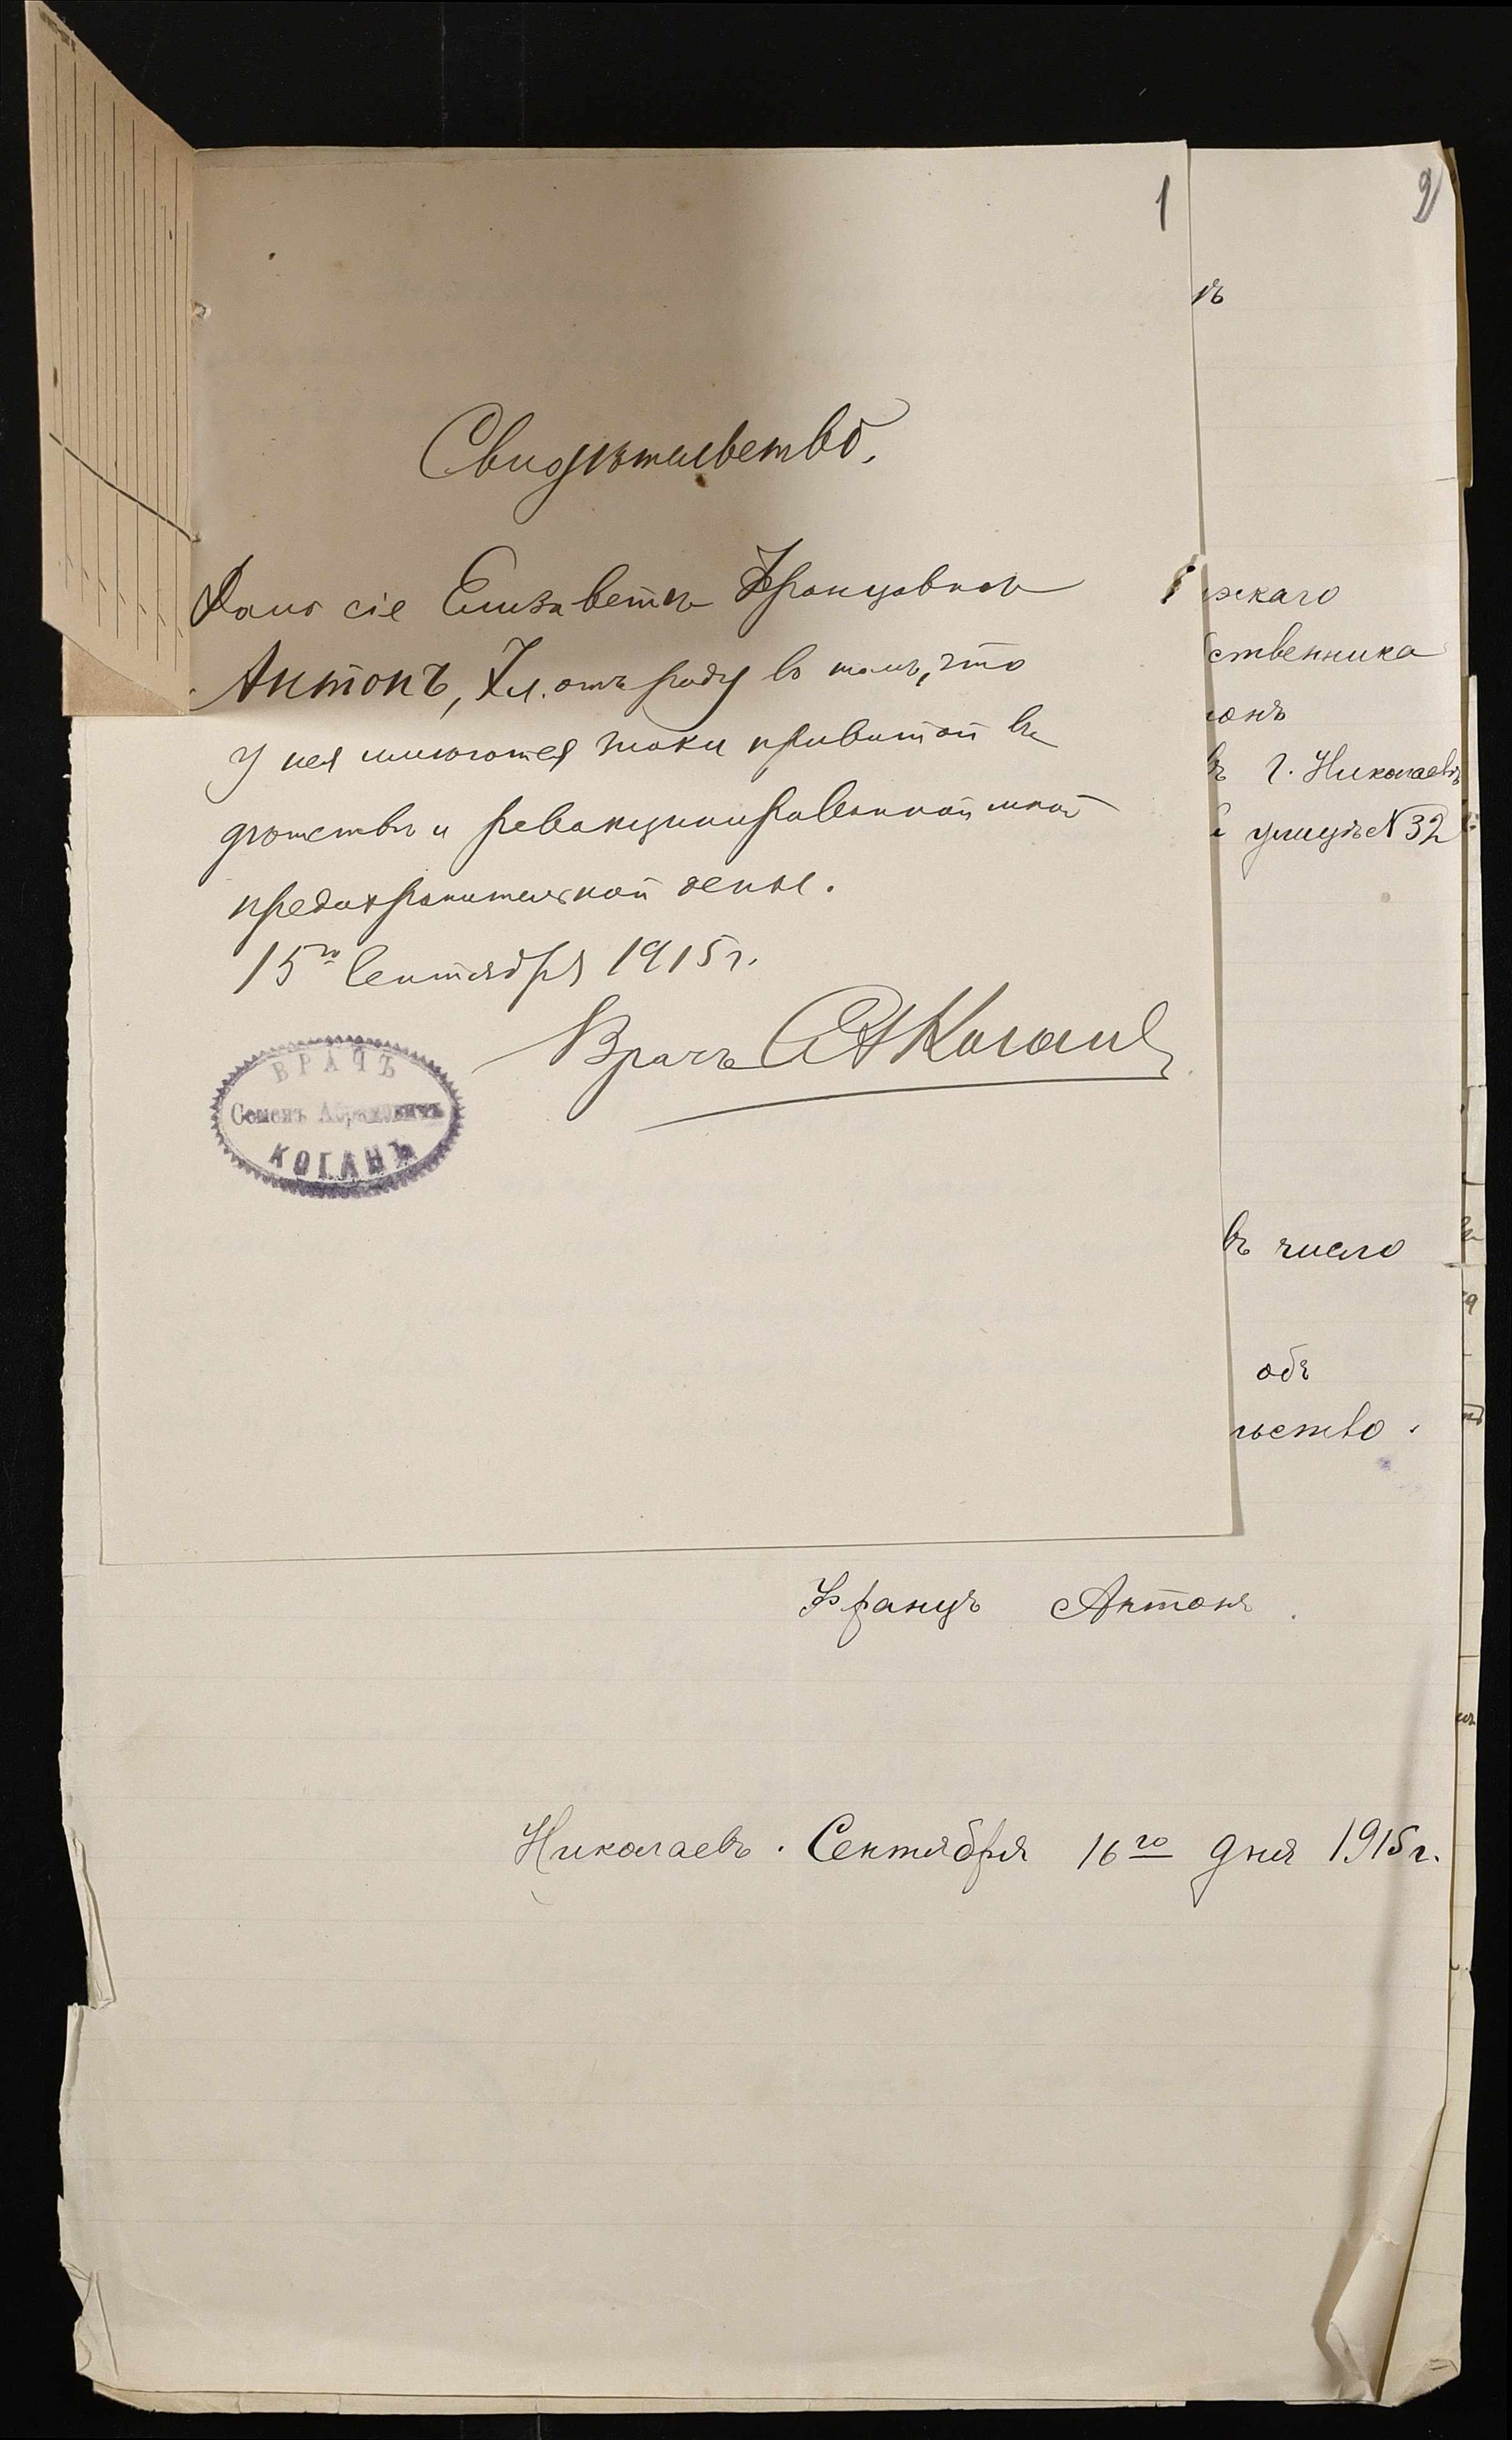 1
2
Свидѣтельство.
Дано сіе Елизаветѣ Францовнѣ
Антонъ, отъ роду въ томъ, что
у нея имеются знаки привитой въ
дѣтствѣ и ревакцинированной мной
предохранительной оспы.
15го Сентября 1915 г.
Врачъ СА Коганъ
ВРАЧЪ
Семенъ Абрамовичъ
КОГАНЪ
ственника
онъ
въ г. Николаевѣ
улицѣ № 32
въ число
объ
льство.
Францъ Антонъ.
Николаевъ. Сентября 16го дня 1915 г.